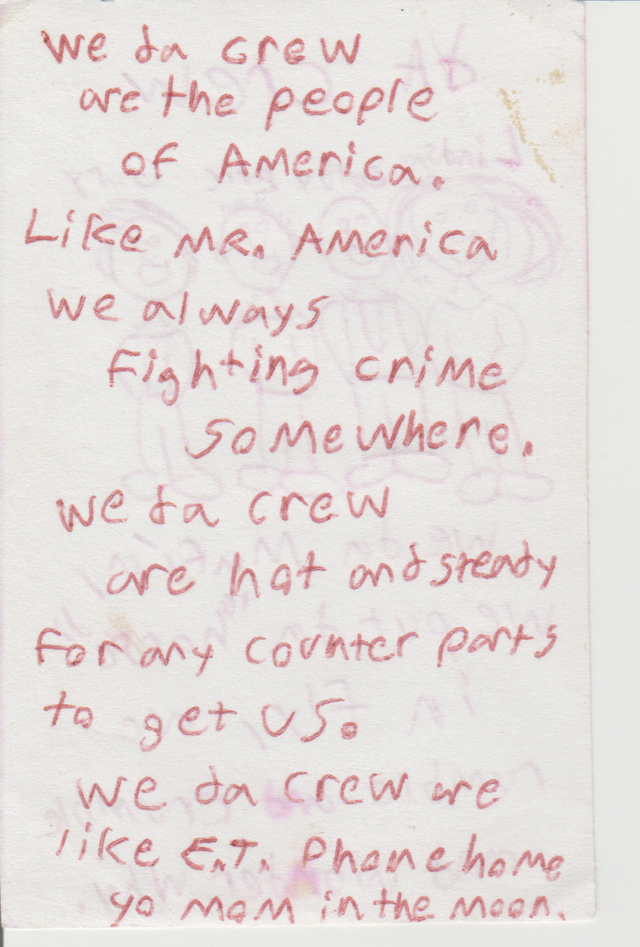 we da crew
are the people
of America.
Like MR. America
we always
Fighting crime
somewhere.
we da crew
are hat and steady
for any counter parts
to get us.
we da crew are
like E.T. Phone home
yo mom in the moon.